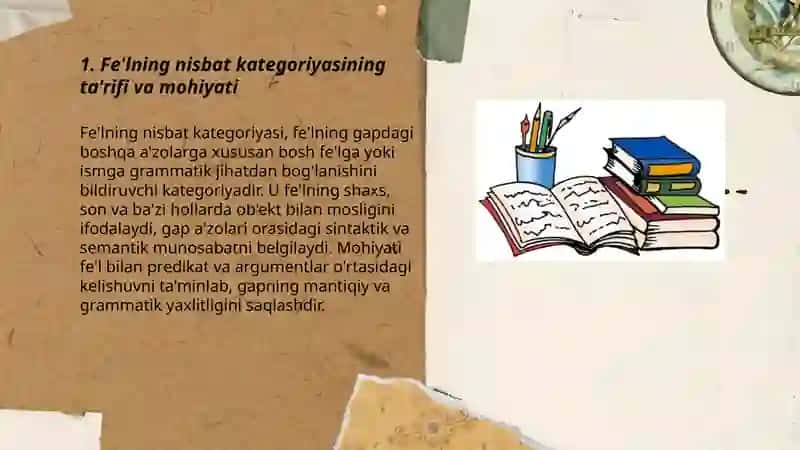 1. Fe'lning nisbat kategoriyasining
ta'rifi va mohiyati
Fe'lning nisbat kategoriyasi, fe'lning gapdagi
boshqa a'zolarga xususan bosh fe'lga yoki
ismga grammatik jihatdan bog'lanishini
bildiruvchi kategoriyadir. U fe'lning shaxs,
son va ba'zi hollarda ob'ekt bilan mosligini
ifodalaydi, gap a'zolari orasidagi sintaktik va
semantik munosabatni belgilaydi. Mohiyati
fe'l bilan predikat va argumentlar o'rtasidagi
kelishuvni ta'minlab, gapning mantiqiy va
grammatik yaxlitligini saqlashdir.